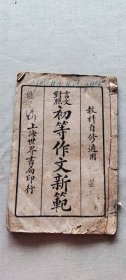 教科自修適用
言文對照
初等作文新範
上海世界書局印行